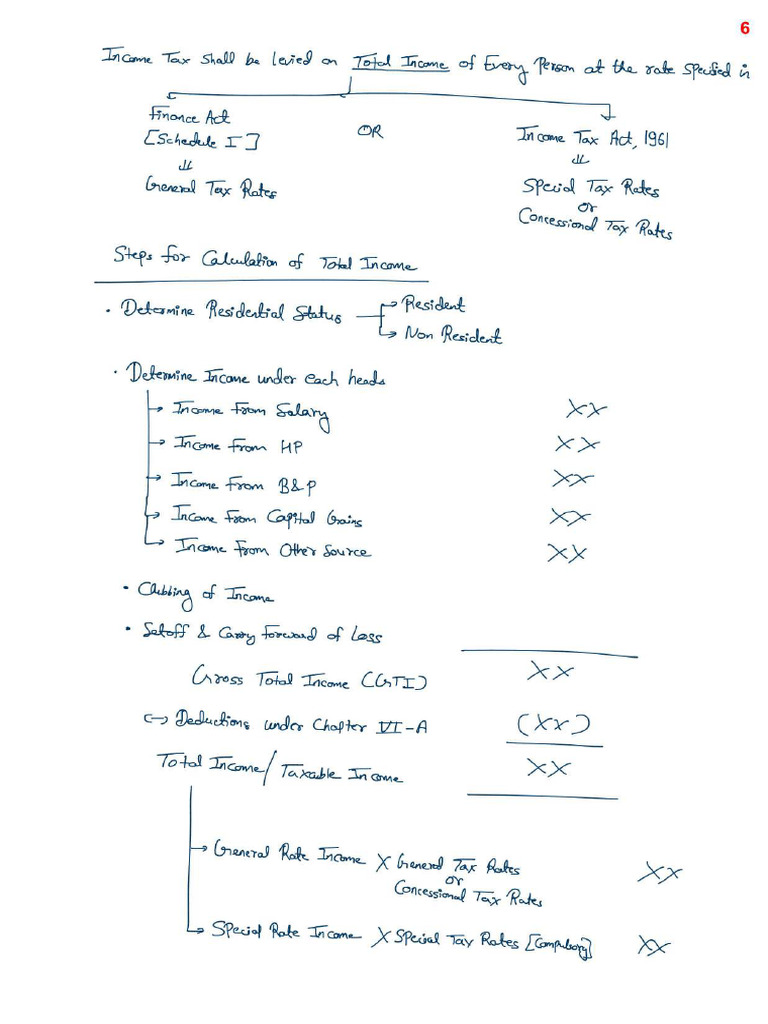 6
Income Tax shall be levied on Total Income of Every Person at the rate specified in
Finance Act
[Schedule I]
General Tax Rates
OR
Income Tax Act, 1961
Special Tax Rates
or
Concessional Tax Rates
Steps for Calculation of Total Income
• Determine Residential Status
Resident
Non Resident
• Determine Income under each heads
Income from Salary XX
Income from HP XX
Income from B&P XX
Income from Capital Gains XX
Income from Other Source XX
• Clubbing of Income
• Setoff & Carry forward of Loss
Gross Total Income (GTI) XX
(-) Deductions under Chapter VI-A (XX)
Total Income/Taxable Income XX
General Rate Income X General Tax Rates XX
or
Concessional Tax Rates
Special Rate Income X Special Tax Rates [Compulsory] XX